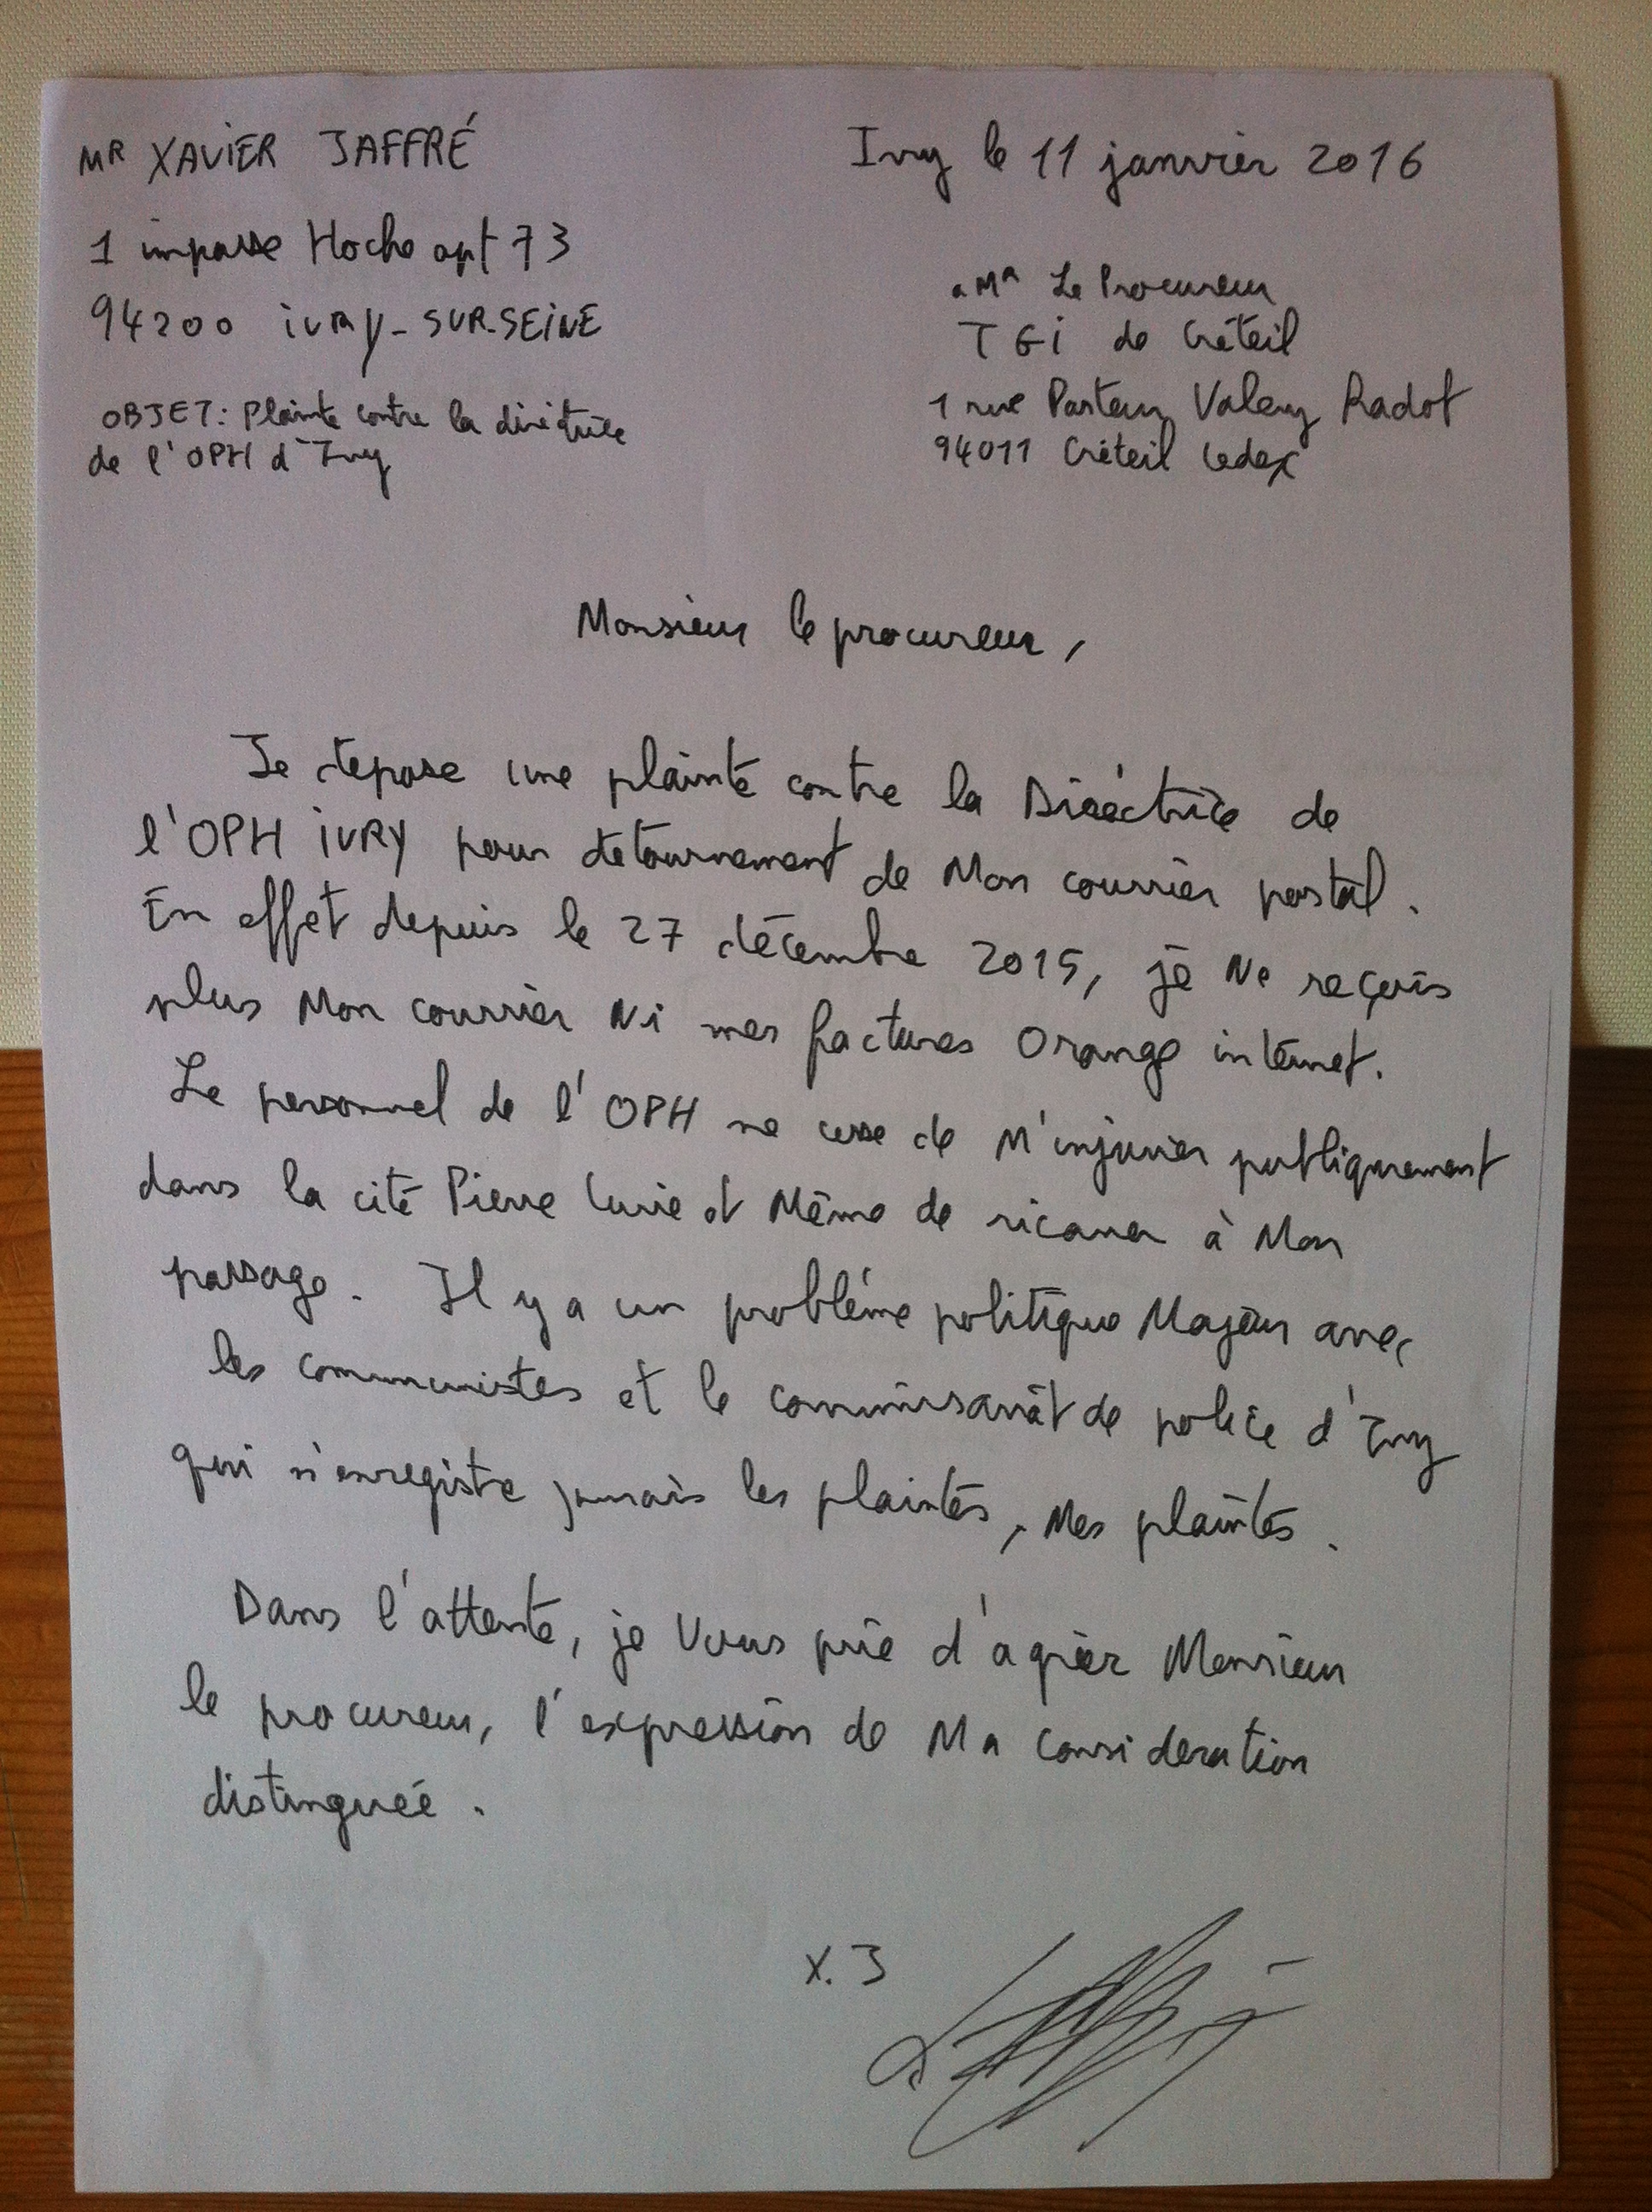 MR XAVIER JAFFRÉ
Ivry le 11 janvier 2016
1 impasse Hoche apt 73
94200 iVRY-SUR-SEINE
OBJET: Plainte contre la diréctrice
de l'OPH d'Ivry
a MR Le Procureur
TGi de Créteil
1 rue Pasteur Valery Radot
94011 Créteil cedex
Monsieur le procureur,
Je depose une plainte contre la Diréctrice de
l'OPH iVRY pour detournement de Mon courrier postal.
En effet depuis le 27 décembre 2015, je Ne reçois
plus Mon courrier Ni mes factures Orange internet.
Le personnel de l'OPH ne cesse de M'injurier publiquement
dans la cité Pierre Curie et Même de ricaner à Mon
passage. Il y a un problème politique Majeur avec
les communistes et le commissariat de police d'Ivry
qui n'enregistre jamais les plaintes, Mes plaintes.
Dans l'attente, je Vous prie d'agréer Monsieur
le procureur, l'expression de Ma consideration
distinguée.
X. J